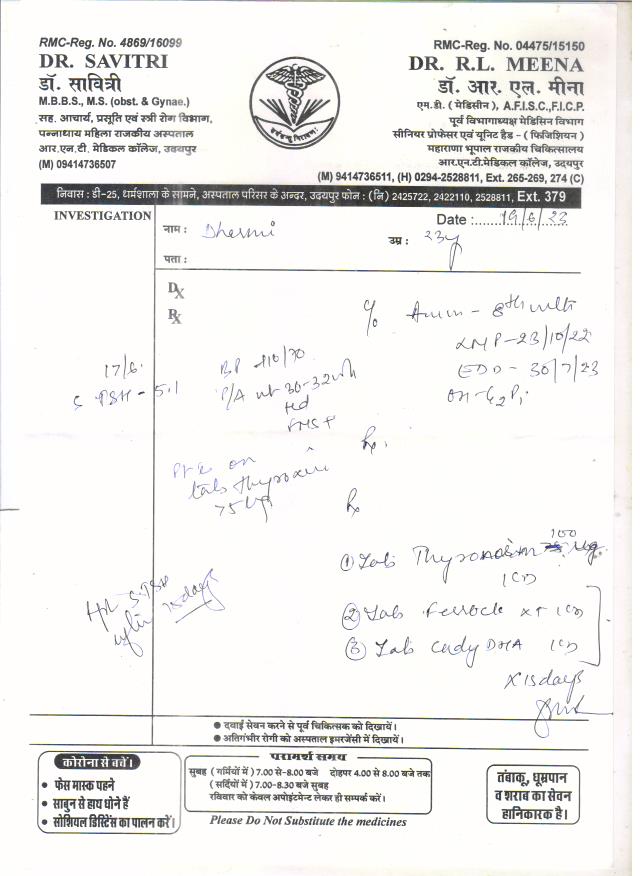 RMC-Reg. No. 4869/16099
DR. SAVITRI
डॉ. सावित्री
M.B.B.S., M.S. (obst. & Gynae.)
सह. आचार्य, प्रसूति एवं स्त्री रोग विभाग,
पन्नाधाय महिला राजकीय अस्पताल
आर.एन.टी. मेडिकल कॉलेज, उदयपुर
(M) 09414736507
RMC-Reg. No. 04475/15150
DR. R.L. MEENA
डॉ. आर. एल. मीना
एम.डी. ( मेडिसीन ), A.F.I.S.C.,F.I.C.P.
पूर्व विभागाध्यक्ष मेडिसिन विभाग
सीनियर प्रोफेसर एवं यूनिट हैड - ( फिजिशियन )
महाराणा भूपाल राजकीय चिकित्सालय
आर.एन.टी.मेडिकल कॉलेज, उदयपुर
(M) 9414736511, (H) 0294-2528811, Ext. 265-269, 274 (C)
निवास : डी-25, धर्मशाला के सामने, अस्पताल परिसर के अन्दर, उदयपुर फोन : (नि) 2425722, 2422110, 2528811, Ext. 379
INVESTIGATION
Date : 19/6/23
नाम : Dhermi
उम्र : 23y
पता :
DX
RX
c/o Amm - 8th mth
LMP - 23/10/22
EDD - 30/7/23
on - G2P1
17/6
S TSH - 5.1
BP 110/70
P/A ut 30-32wk
FHS +
Pt is on
tab thyroxin
75 ug
Rx
Rx
① Tab Thyronorm 100 ug
1 OD
② Tab Ferrock XT 1 OD
③ Tab Cady DHA 1 OD
x 15 days
S.TSH
after 15 days
● दवाई सेवन करने से पूर्व चिकित्सक को दिखायें।
● अतिगंभीर रोगी को अस्पताल इमरजेंसी में दिखायें।
कोरोना से बचें।
• फेस मास्क पहने
• साबुन से हाथ धोने हैं
• सोशियल डिस्टेंस का पालन करें।
परामर्श समय
सुबह ( गर्मियों में ) 7.00 से-8.00 बजे दोहपर 4.00 से 8.00 बजे तक
( सर्दियों में ) 7.00-8.30 बजे सुबह
रविवार को केवल अपोइंटमेन्ट लेकर ही सम्पर्क करें।
Please Do Not Substitute the medicines
तंबाकू, धूम्रपान
व शराब का सेवन
हानिकारक है।